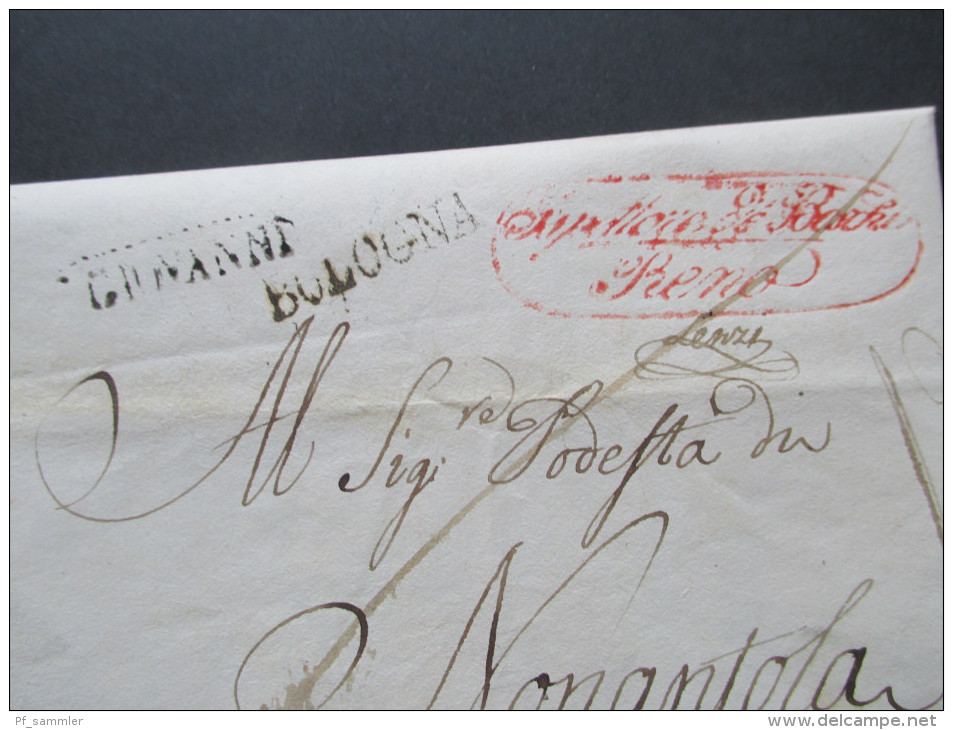 BOLOGNA
Reno
Lenzi
Al Sig.re Podestà di
Nonantola
Pf_sammler
www.delcampe.net